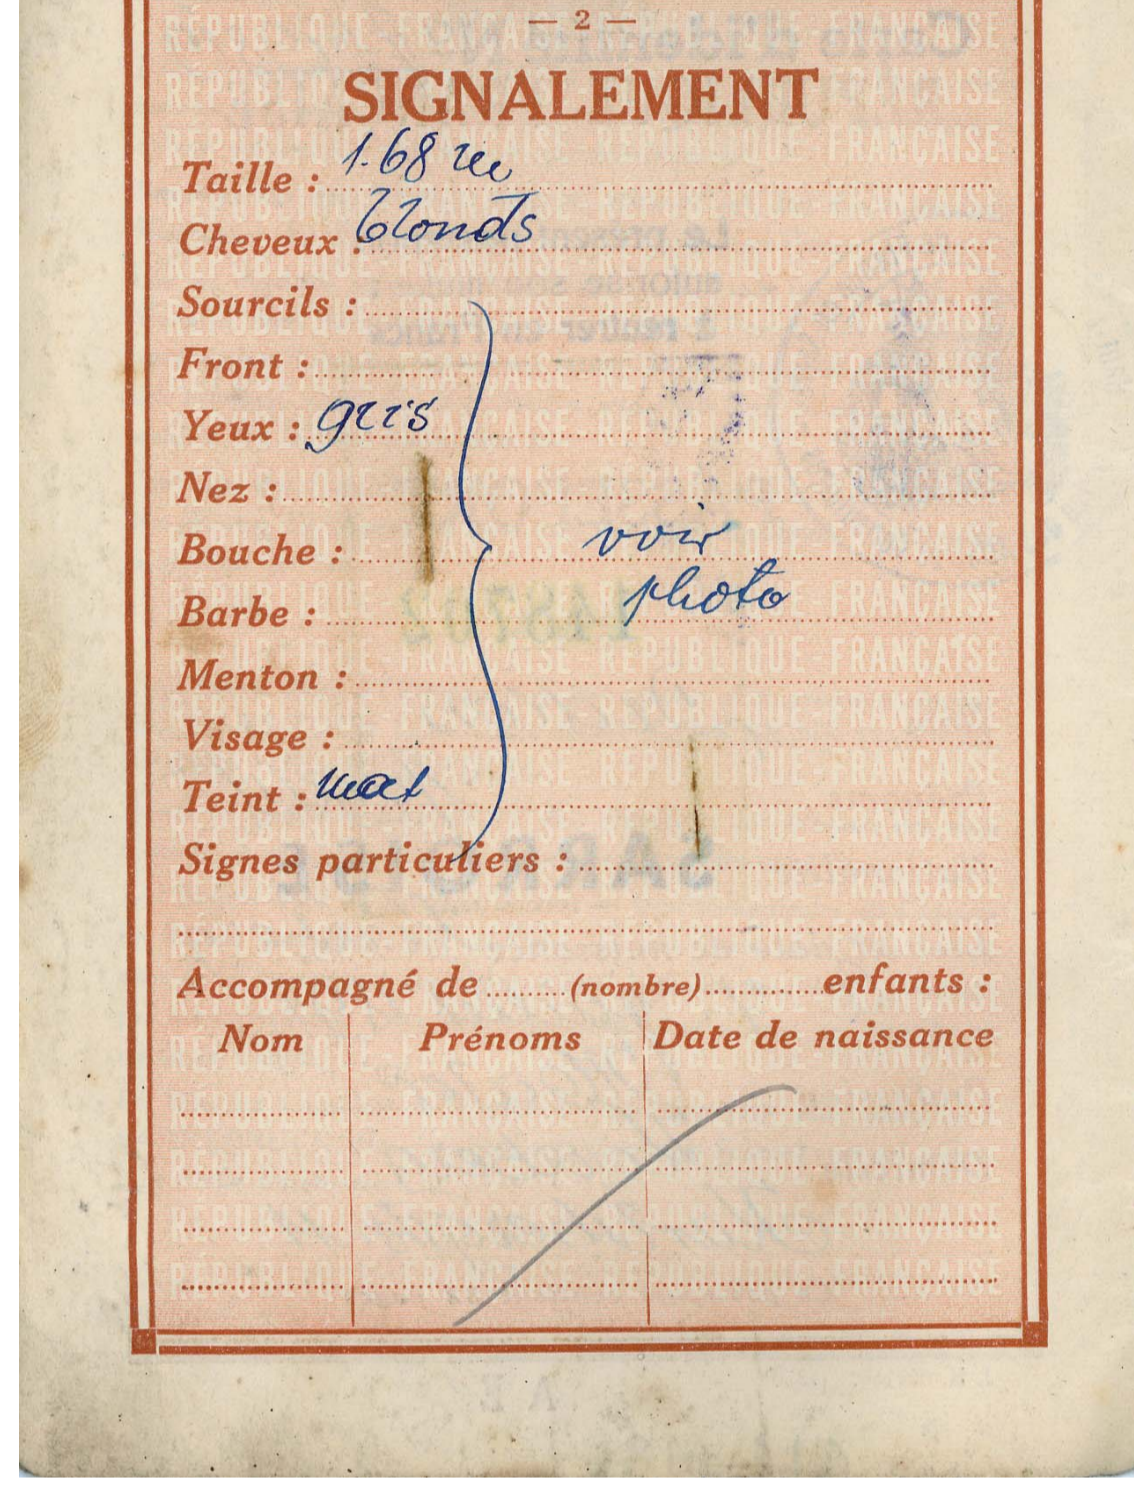 — 2 —
SIGNALEMENT
Taille : 1.68 m
Cheveux : blonds
Sourcils :
Front :
Yeux : gris
Nez :
Bouche : voir
Barbe : photo
Menton :
Visage :
Teint : mat
Signes particuliers :
Accompagné de (nombre) enfants :
Nom Prénoms Date de naissance